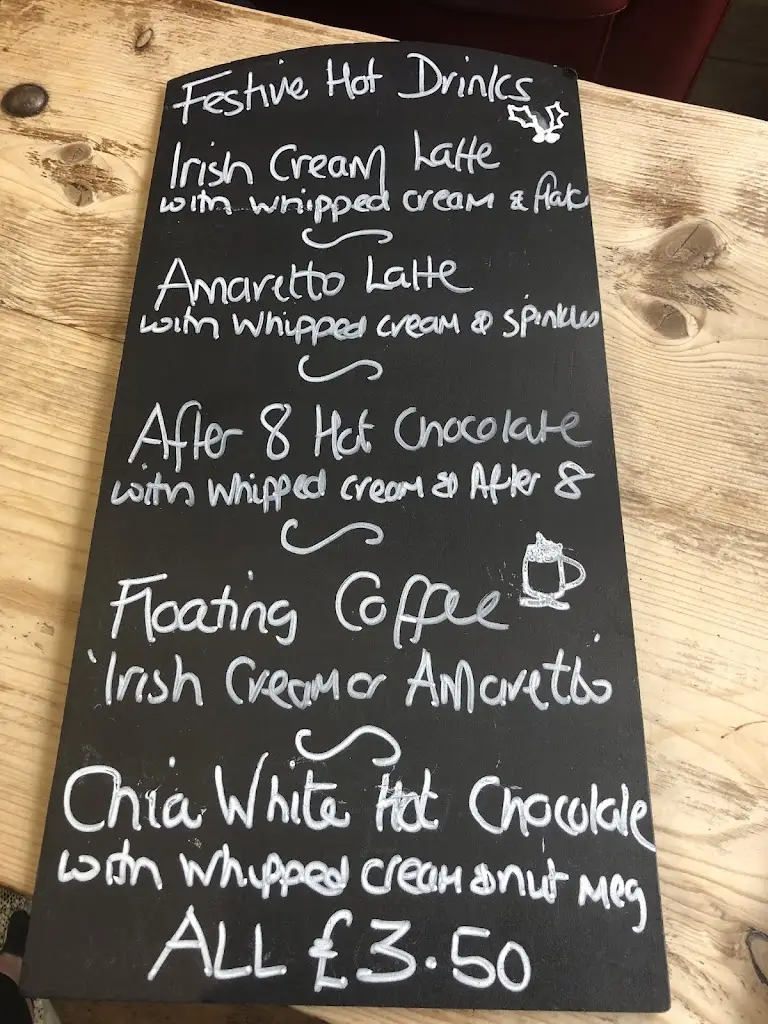 Festive Hot Drinks
Irish Cream Latte
with whipped cream & flake
Amaretto Latte
with whipped cream & spinkles
After 8 Hot Chocolate
with whipped cream & After 8
Floating Coffee
'Irish Cream or Amaretto'
Chia White Hot Chocolate
with whipped cream & nut meg
ALL £3.50